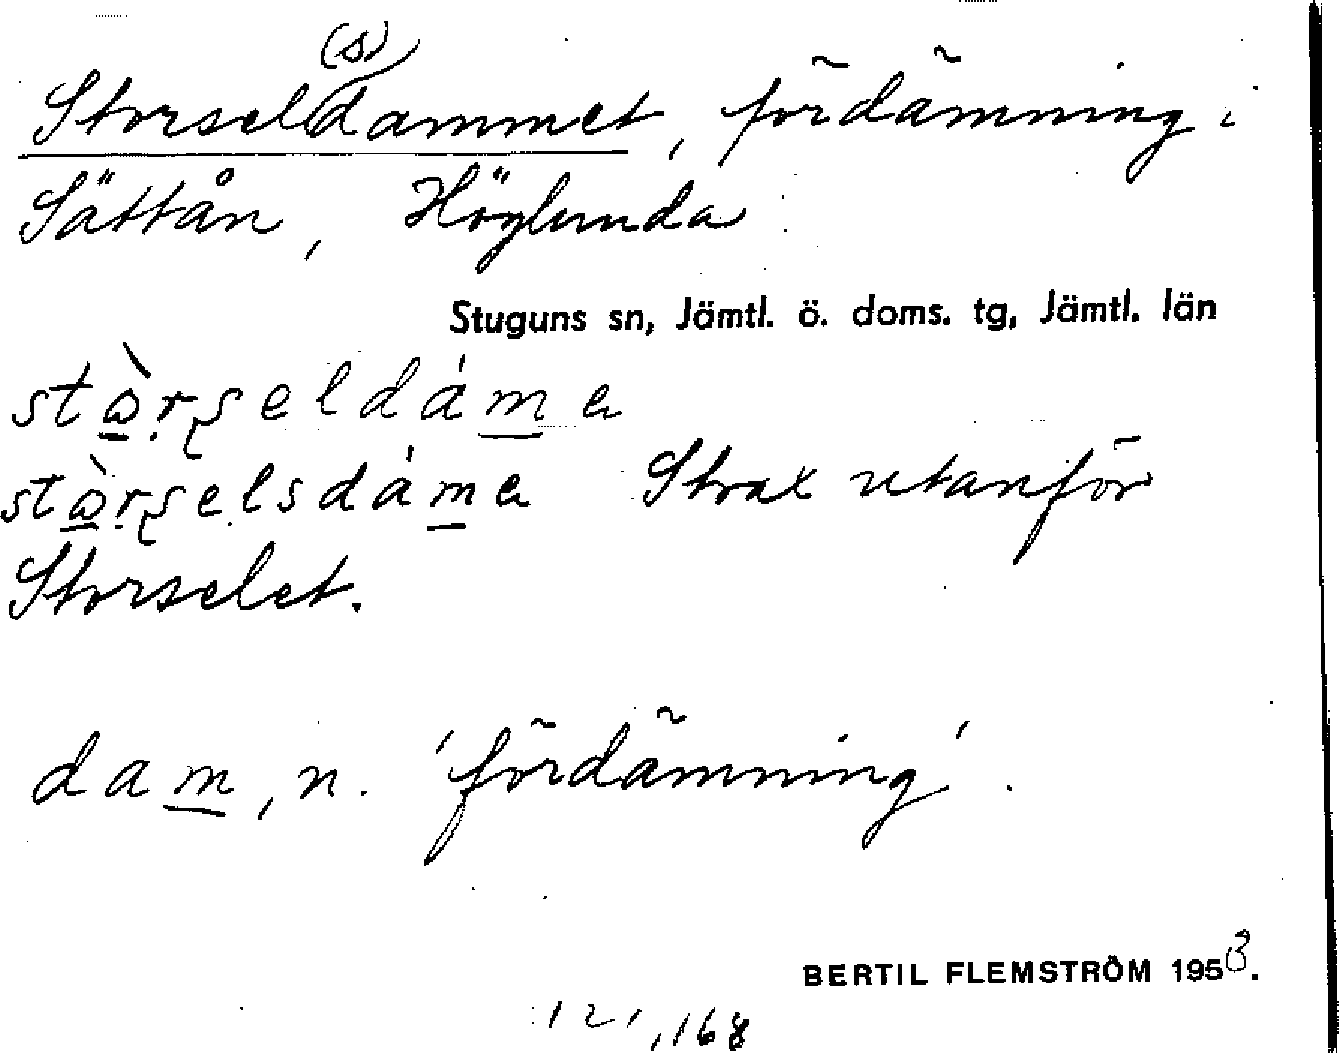 Storsel(s)dammet, fördämning i
Sättån, Höglunda
Stuguns sn, Jämtl. ö. doms. tg, Jämtl. län
stɷ̀rṣeldáma
stɷ̀rṣelsdáma Strax utanför
Storselet.
dam, n. 'fördämning'.
BERTIL FLEMSTRÖM 1953.
121, 168